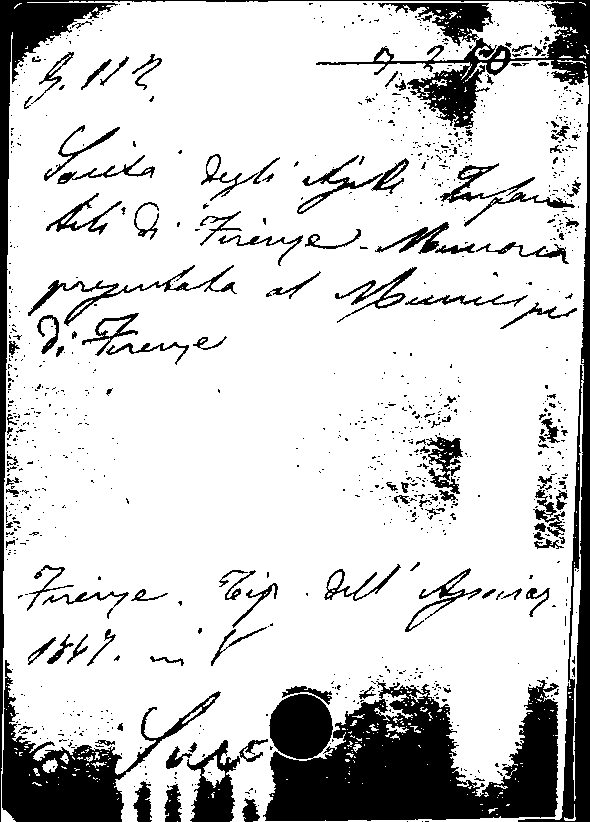 G. 112. 7, 2, 50
Società degli Asili Infan
tili di Firenze. Memoria
presentata al Municipio
di Firenze
Firenze. Tip. dell'
1867. in 8